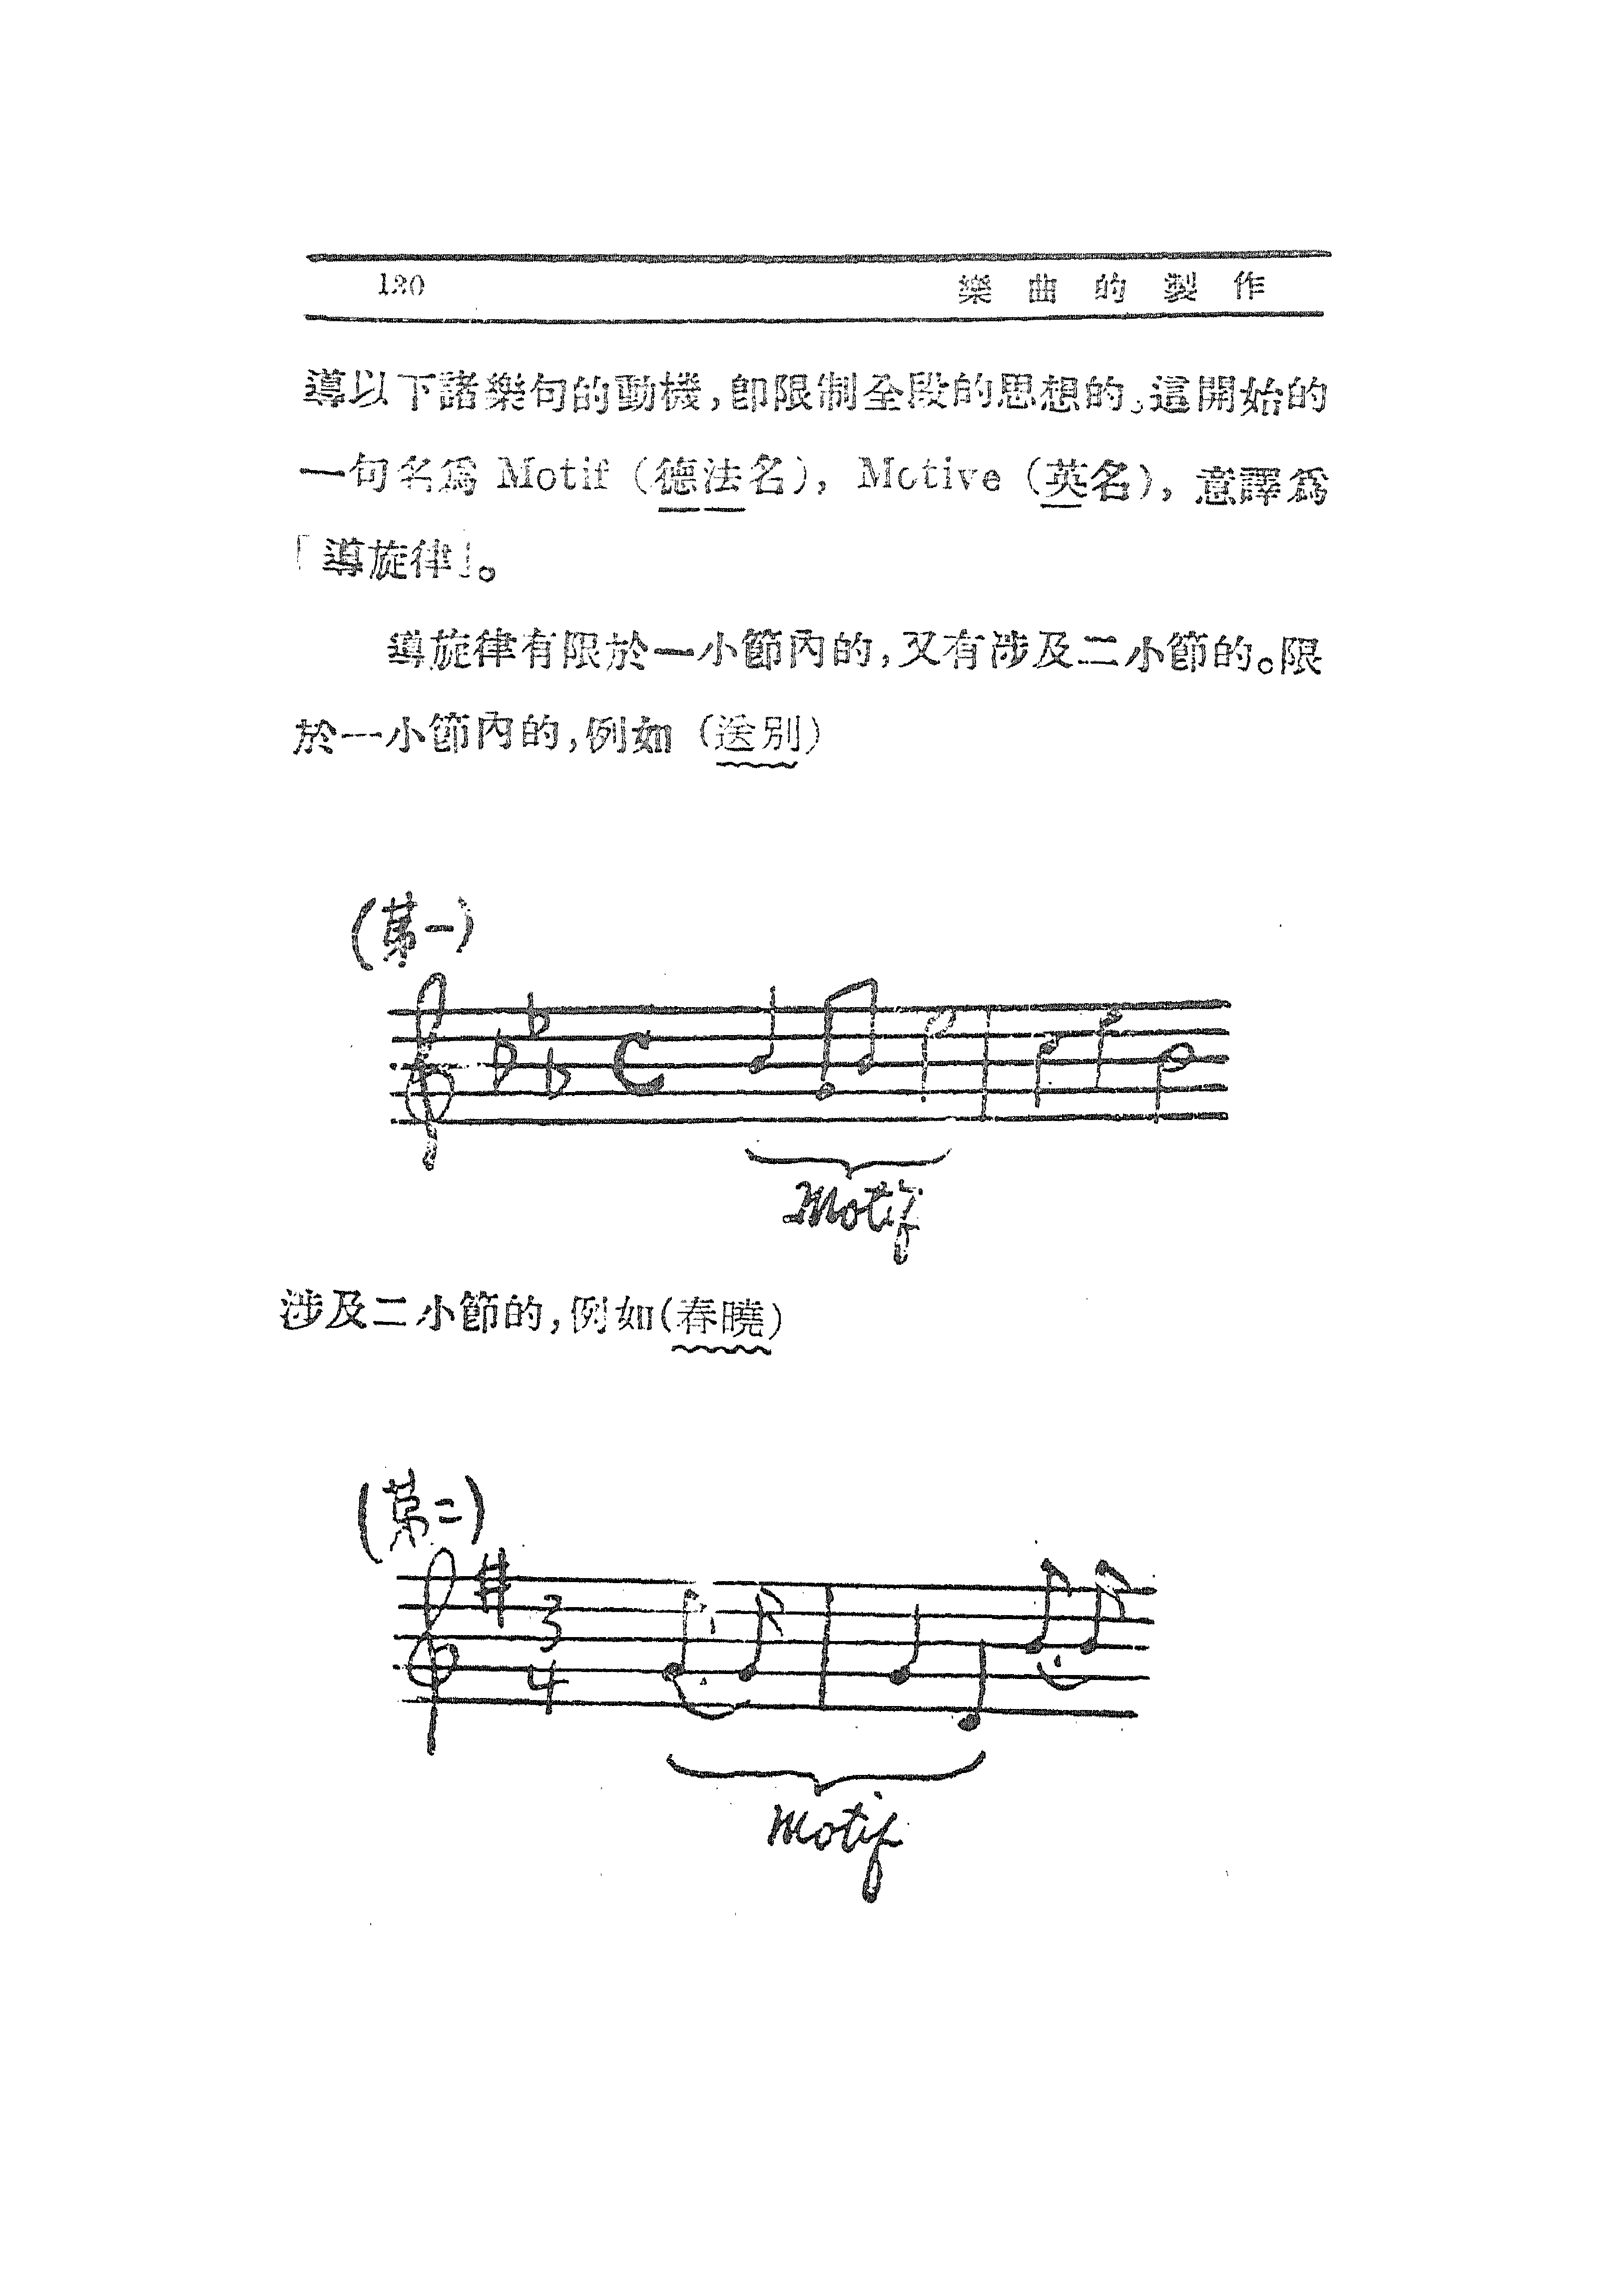 130 樂曲的製作
導以下諸樂句的動機,卽限制全段的思想的。這開始的
一句名爲 Motif (德法名), Motive (英名), 意譯爲
「導旋律」。
導旋律有限於一小節內的,又有涉及二小節的。限
於一小節內的,例如 (送別)
(第一)
C
Motif
涉及二小節的,例如(春曉)
(第二)
3
4
Motif